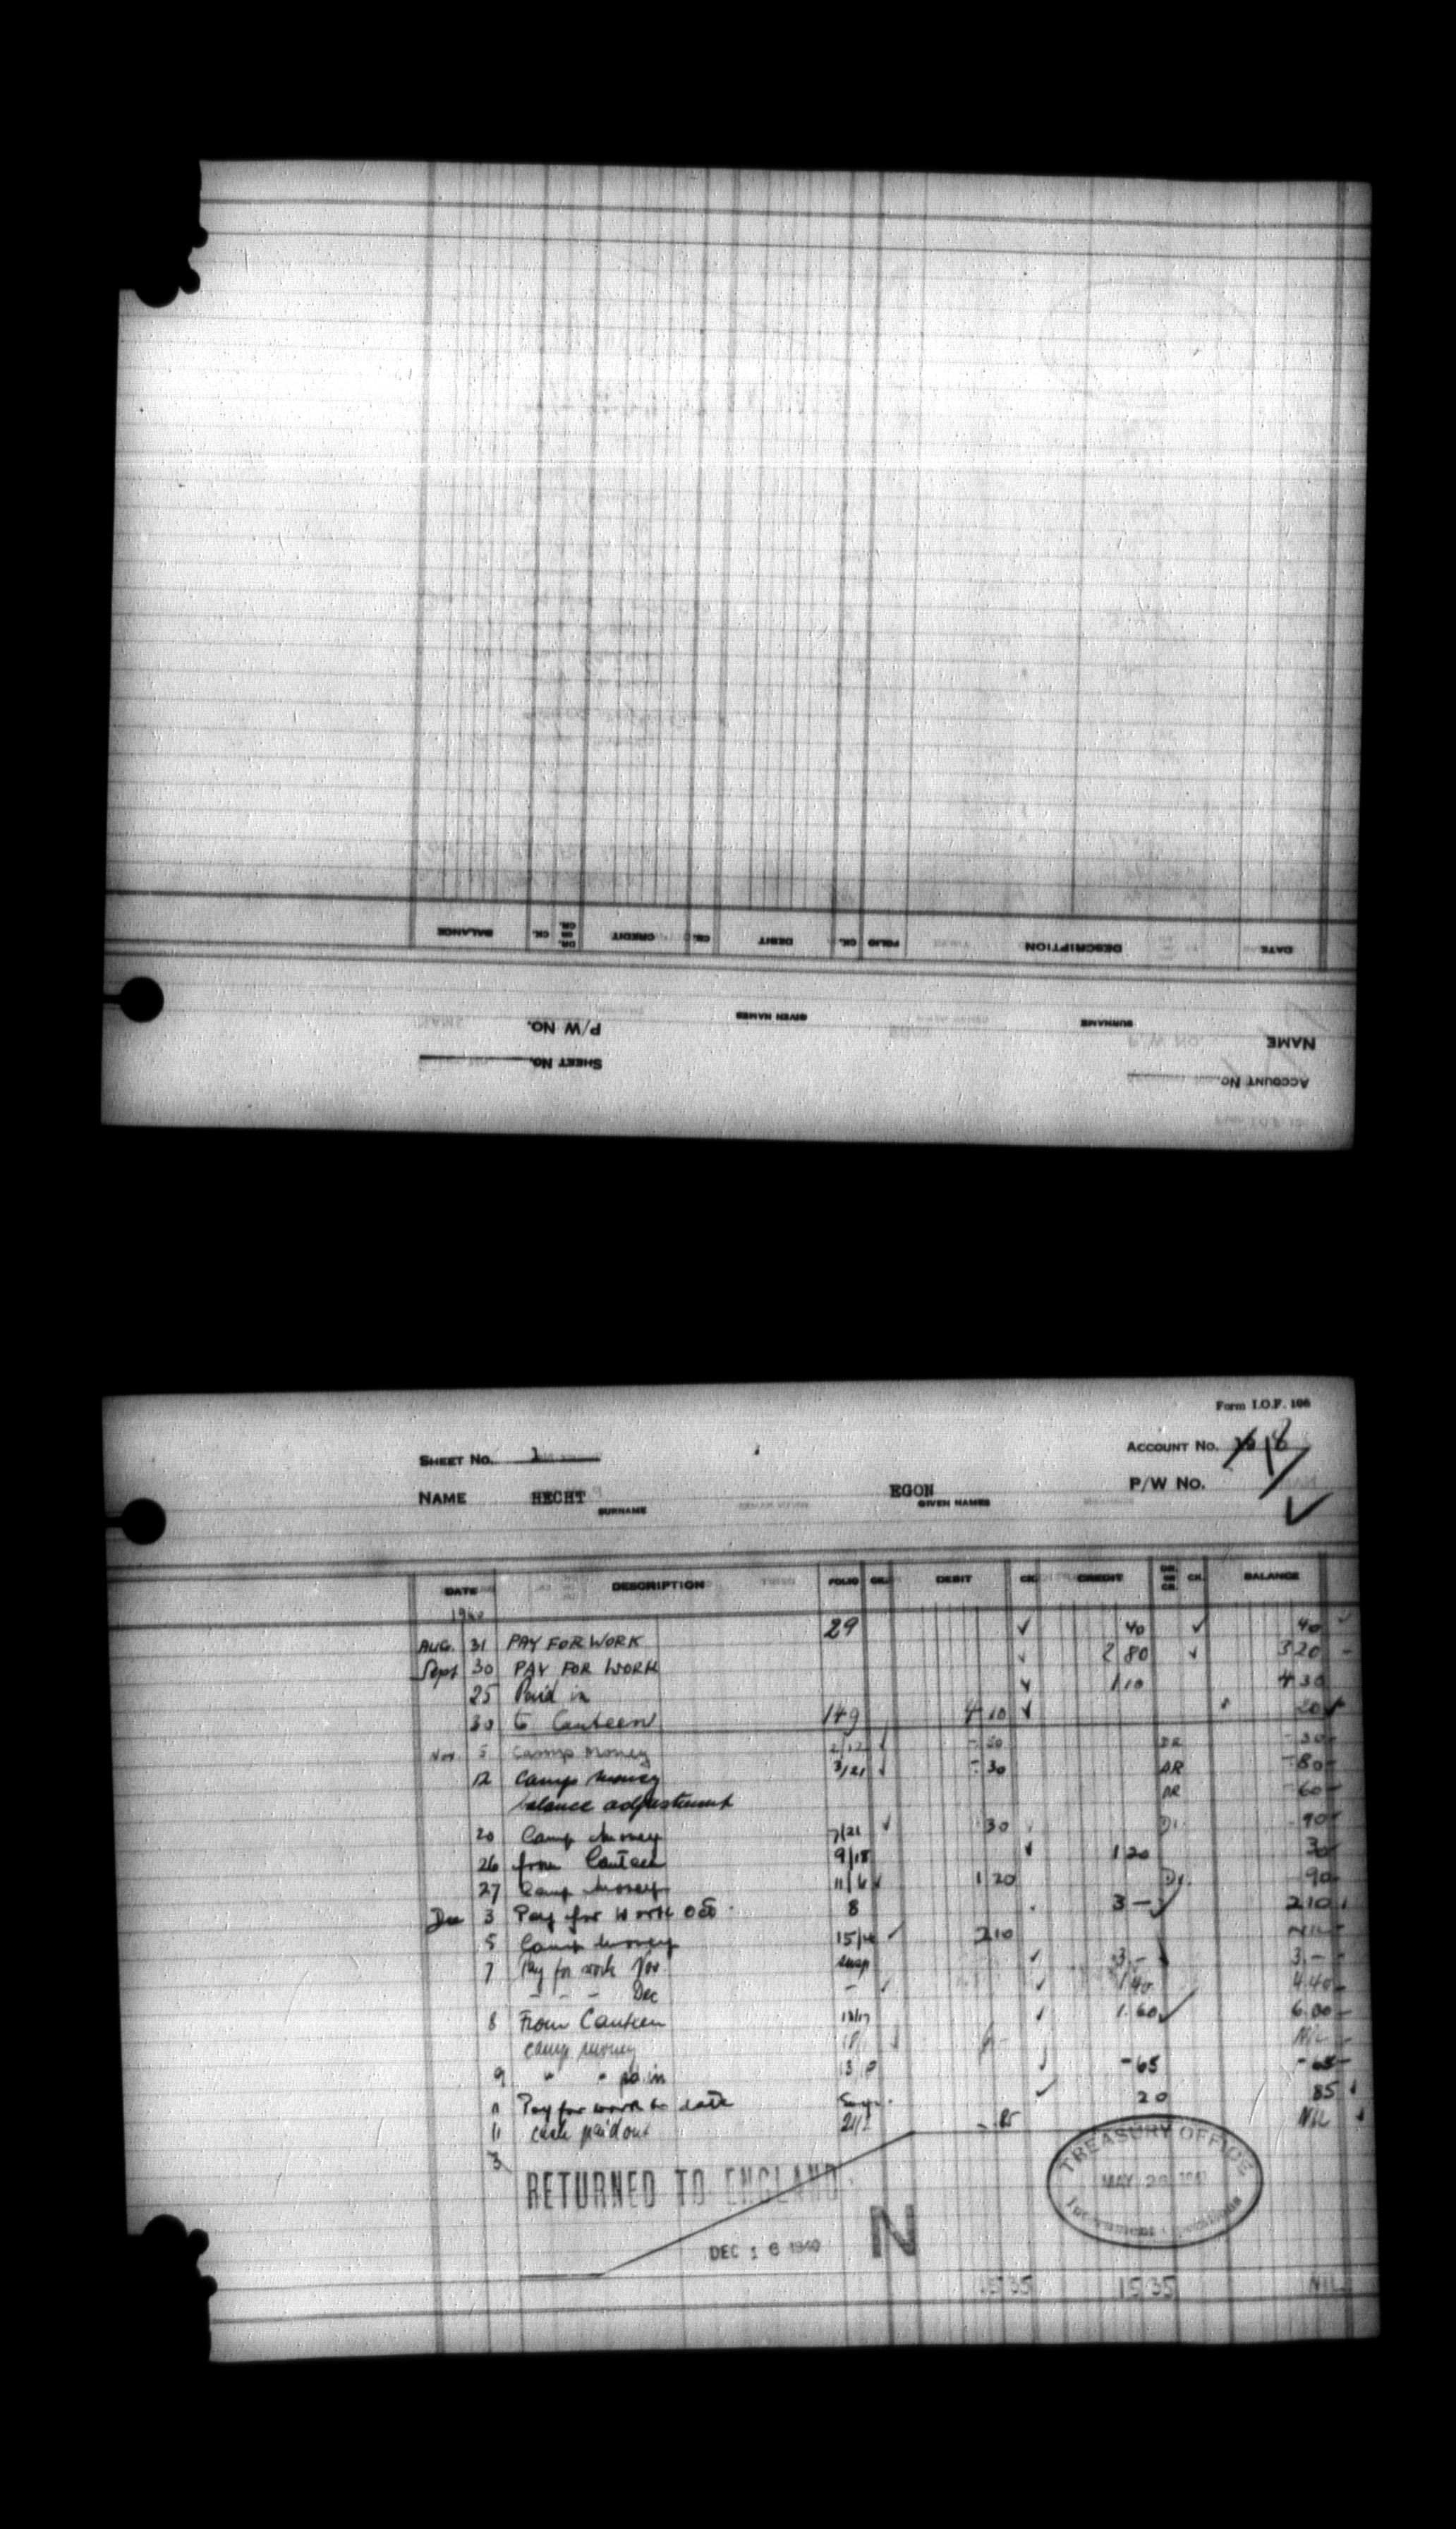 BALANCE CK. DR. OR CR. CREDIT CK. DEBIT CK. FOLIO DESCRIPTION DATE
P/W NO. GIVEN NAMES SURNAME NAME
SHEET NO. ACCOUNT NO.
Form I.O.F. 106
SHEET NO. 1 ACCOUNT NO. 18
NAME HECHT EGON P/W NO.
SURNAME GIVEN NAMES
DATE DESCRIPTION FOLIO CK. DEBIT CK. CREDIT DR. OR CR. CK. BALANCE
1940
AUG. 31 PAY FOR WORK 29 40 40
Sept 30 PAY FOR WORK 2 80 3 20
25 Paid in 1 10 4 30
30 to Canteen 149 4 10 20
Nov. 5 Camp Money 2/12 DR
12 Camp Money 3/21 - 30 DR - 80
balance adjustment DR 60
20 Camp Money 7/21 30 90
26 from Canteen 9/18 1 20 30
27 Camp Money 11/6 1 20 90
Dec 3 Pay for work Oct. 8 3 - 2 10
5 Camp Money 2 10 NIL
7 Pay for work Nov susp 3.- 3.-
- - - Dec - 1 40 4.40
8 From Canteen 1.60 6.00
camp money Nil
9 " " pd. in - 65 - 65
11 Pay for work to date 20 85
11 cash paid out 85 NIL
RETURNED TO ENGLAND
TREASURY OFFICE
MAY 28 1941
Internment Operations
DEC 16 1940 N
15 35 15 35 NIL